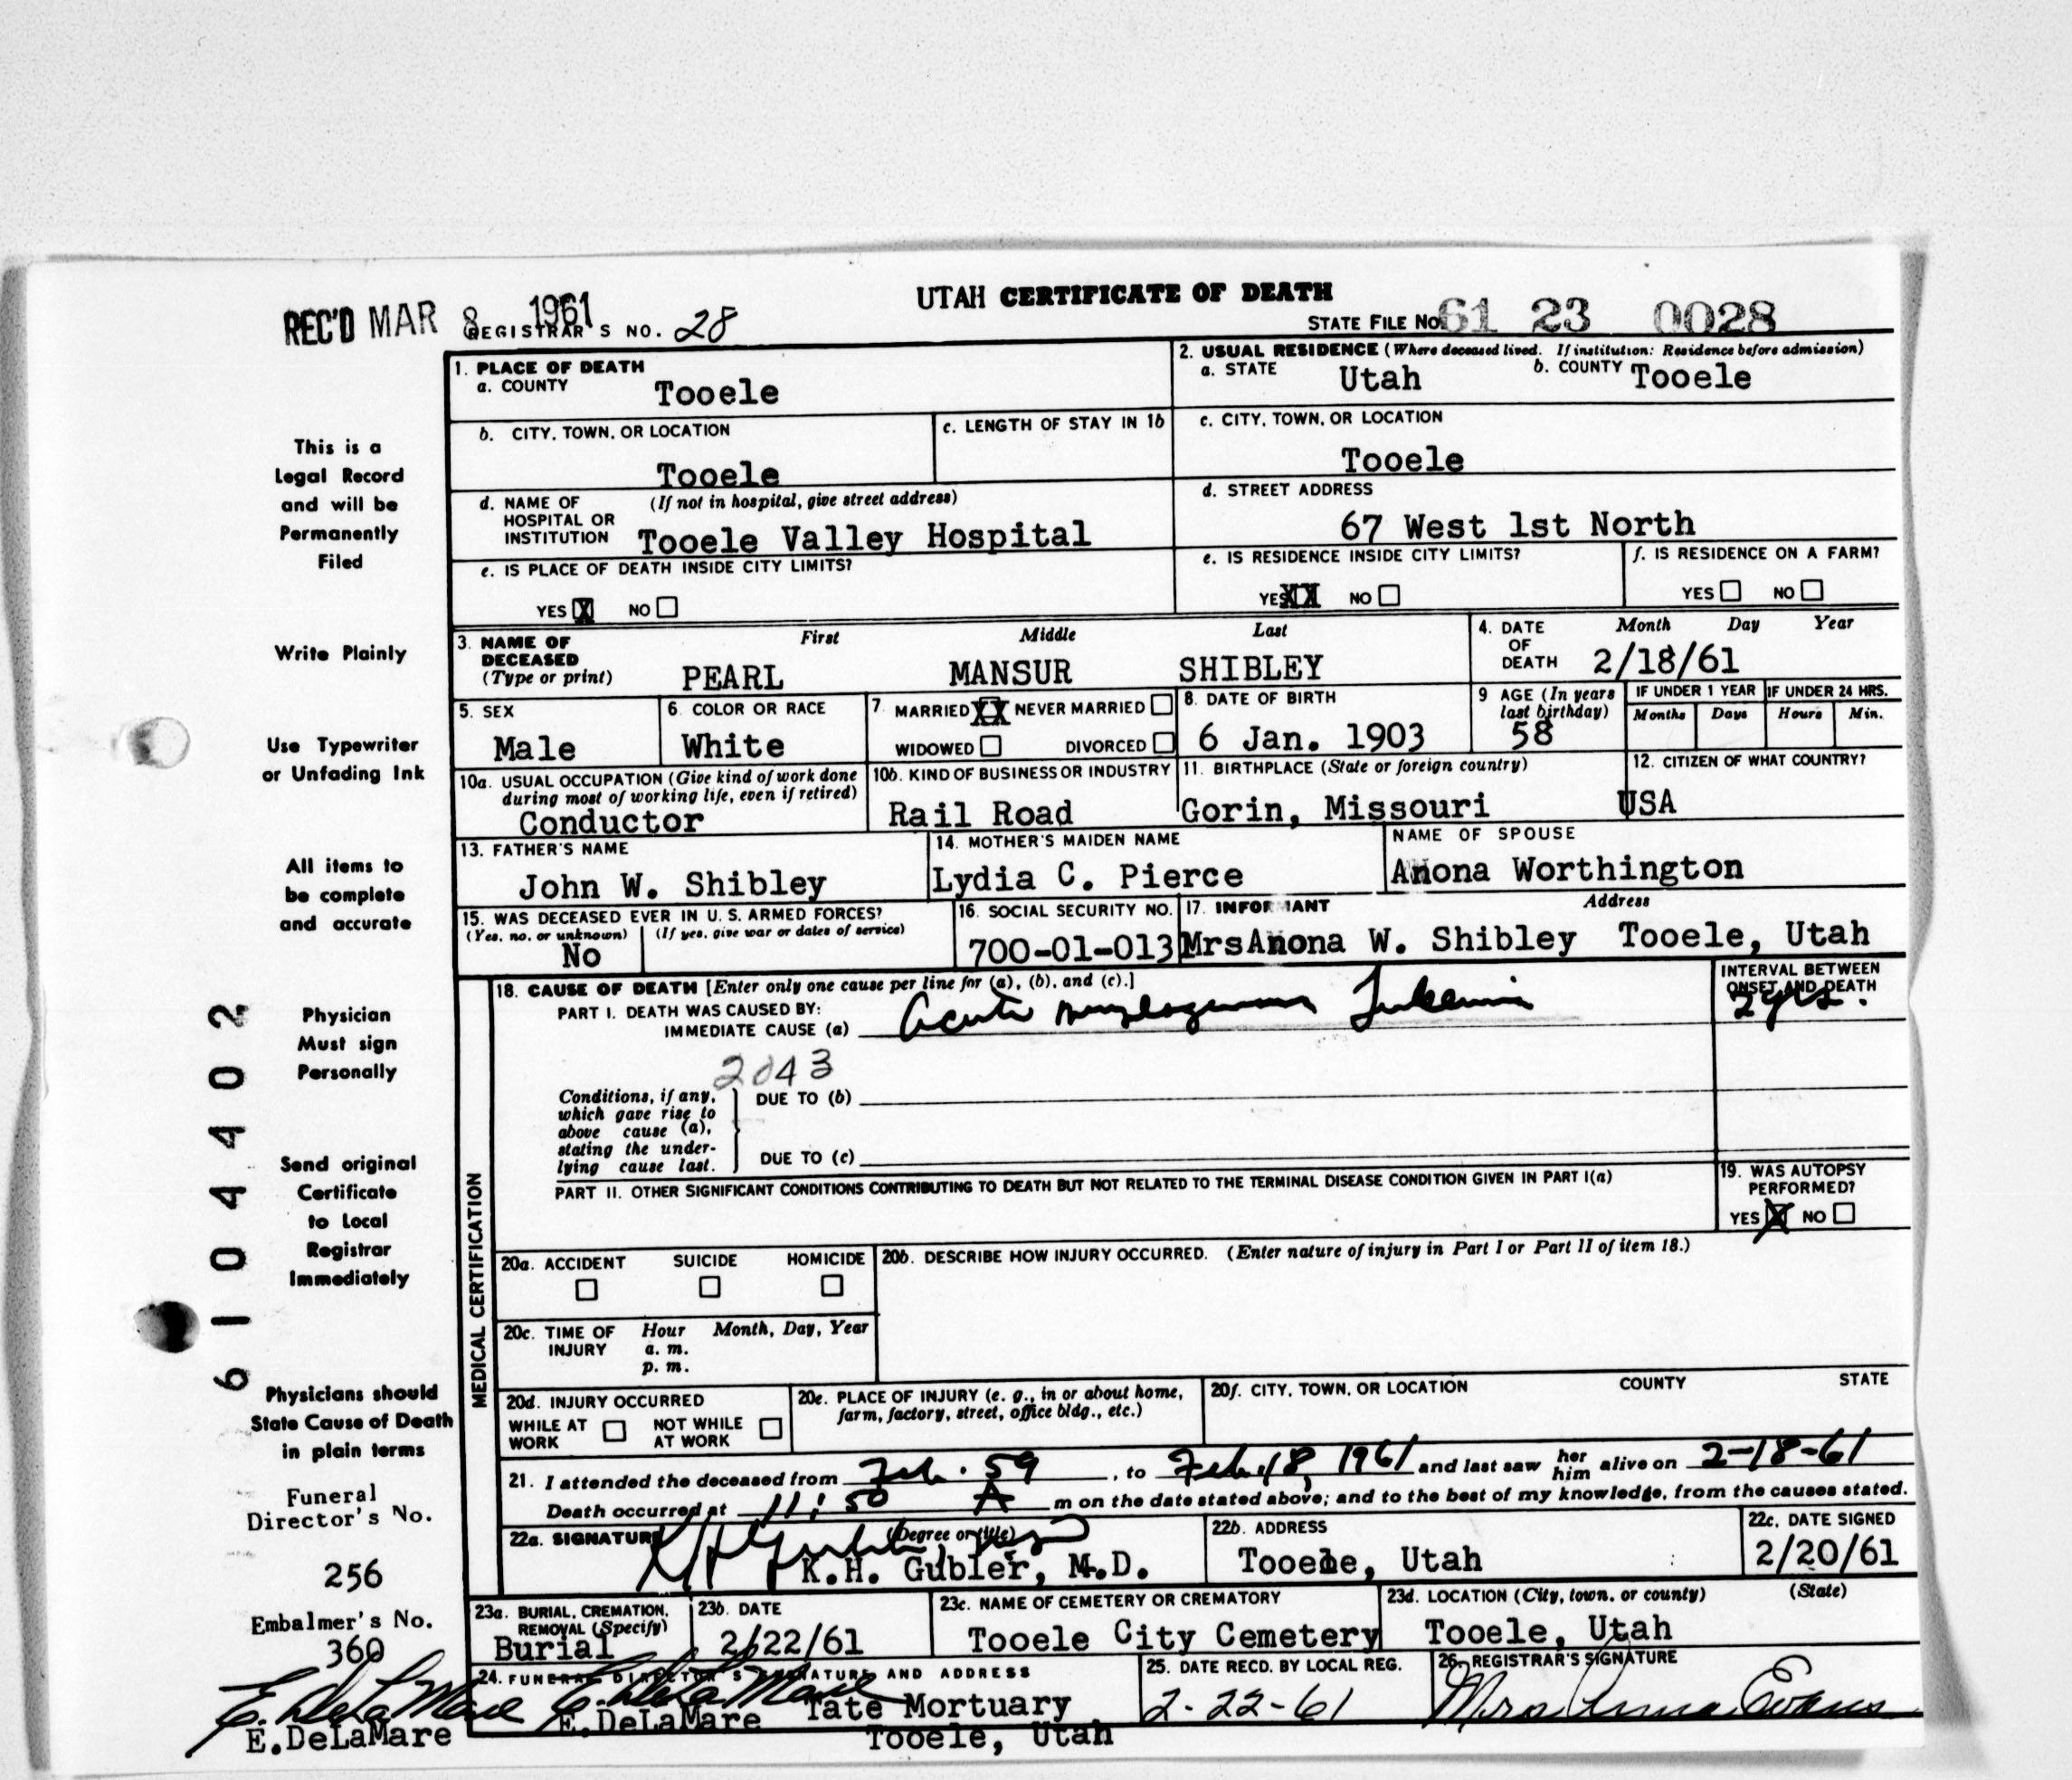 UTAH CERTIFICATE OF DEATH
REC'D MAR 8 1961
REGISTRAR'S NO. 28
STATE FILE NO. 61 23 0028
1. PLACE OF DEATH
a. COUNTY Tooele
2. USUAL RESIDENCE (Where deceased lived. If institution: Residence before admission)
a. STATE Utah b. COUNTY Tooele
b. CITY, TOWN, OR LOCATION
Tooele
c. LENGTH OF STAY IN 1b
c. CITY, TOWN, OR LOCATION
Tooele
d. NAME OF HOSPITAL OR INSTITUTION (If not in hospital, give street address)
Tooele Valley Hospital
d. STREET ADDRESS
67 West 1st North
e. IS PLACE OF DEATH INSIDE CITY LIMITS?
YES X NO
e. IS RESIDENCE INSIDE CITY LIMITS?
YES XX NO
f. IS RESIDENCE ON A FARM?
YES NO
3. NAME OF DECEASED (Type or print)
First Middle Last
PEARL MANSUR SHIBLEY
4. DATE OF DEATH Month Day Year
2/18/61
5. SEX
Male
6. COLOR OR RACE
White
7. MARRIED XX NEVER MARRIED
WIDOWED DIVORCED
8. DATE OF BIRTH
6 Jan. 1903
9 AGE (In years last birthday)
58
IF UNDER 1 YEAR
Months Days
IF UNDER 24 HRS.
Hours Min.
10a. USUAL OCCUPATION (Give kind of work done during most of working life, even if retired)
Conductor
10b. KIND OF BUSINESS OR INDUSTRY
Rail Road
11. BIRTHPLACE (State or foreign country)
Gorin, Missouri
12. CITIZEN OF WHAT COUNTRY?
USA
13. FATHER'S NAME
John W. Shibley
14. MOTHER'S MAIDEN NAME
Lydia C. Pierce
NAME OF SPOUSE
Anona Worthington
15. WAS DECEASED EVER IN U. S. ARMED FORCES?
(Yes, no, or unknown) (If yes, give war or dates of service)
No
16. SOCIAL SECURITY NO.
700-01-013
17. INFORMANT Address
MrsAnona W. Shibley Tooele, Utah
MEDICAL CERTIFICATION
18. CAUSE OF DEATH [Enter only one cause per line for (a), (b), and (c).]
PART I. DEATH WAS CAUSED BY:
IMMEDIATE CAUSE (a) Acute myelogenous Lukemia
INTERVAL BETWEEN ONSET AND DEATH
2 yrs.
2043
Conditions, if any, which gave rise to above cause (a), stating the underlying cause last.
DUE TO (b)
DUE TO (c)
PART II. OTHER SIGNIFICANT CONDITIONS CONTRIBUTING TO DEATH BUT NOT RELATED TO THE TERMINAL DISEASE CONDITION GIVEN IN PART I(a)
19. WAS AUTOPSY PERFORMED?
YES X NO
20a. ACCIDENT SUICIDE HOMICIDE
20b. DESCRIBE HOW INJURY OCCURRED. (Enter nature of injury in Part I or Part II of item 18.)
20c. TIME OF INJURY Hour Month, Day, Year
a. m.
p. m.
20d. INJURY OCCURRED
WHILE AT WORK NOT WHILE AT WORK
20e. PLACE OF INJURY (e. g., in or about home, farm, factory, street, office bldg., etc.)
20f. CITY, TOWN, OR LOCATION COUNTY STATE
21. I attended the deceased from Feb. 59, to Feb. 18, 1961 and last saw her him alive on 2-18-61
Death occurred at 11:50 A m on the date stated above; and to the best of my knowledge, from the causes stated.
22a. SIGNATURE (Degree or title)
K.H. Gubler, M.D.
22b. ADDRESS
Tooele, Utah
22c. DATE SIGNED
2/20/61
23a. BURIAL, CREMATION, REMOVAL (Specify)
Burial
23b. DATE
2/22/61
23c. NAME OF CEMETERY OR CREMATORY
Tooele City Cemetery
23d. LOCATION (City, town, or county) (State)
Tooele, Utah
24. FUNERAL DIRECTOR'S SIGNATURE AND ADDRESS
E. DeLaMare
E.DeLaMare Tate Mortuary
Tooele, Utah
25. DATE RECD. BY LOCAL REG.
2-22-61
26. REGISTRAR'S SIGNATURE
Mrs Anna Evans
This is a
Legal Record
and will be
Permanently
Filed
Write Plainly
Use Typewriter
or Unfading Ink
All items to
be complete
and accurate
Physician
Must sign
Personally
Send original
Certificate
to Local
Registrar
Immediately
Physicians should
State Cause of Death
in plain terms
Funeral
Director's No.
256
Embalmer's No.
360
E. DeLaMare
E.DeLaMare
6104402